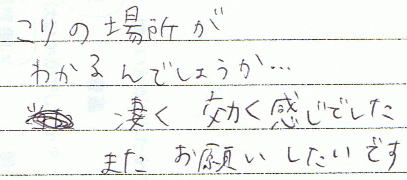 こりの場所が
わかるんでしょうか…
凄く 効く感じでした
また お願いしたいです